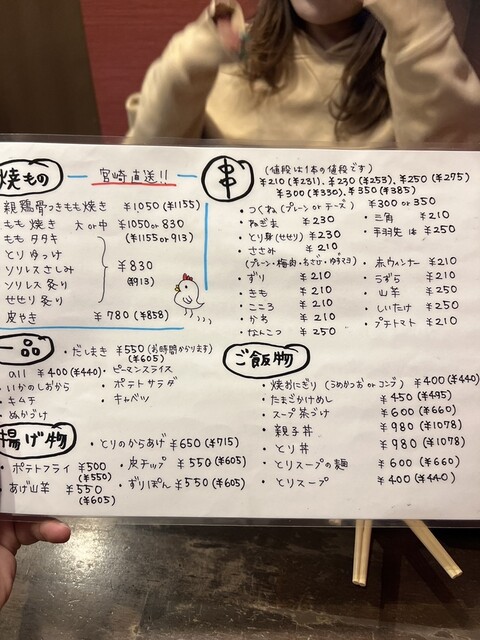 焼もの
宮崎直送!!
親鶏骨つきもも焼き ¥1,050 (¥1155)
もも焼き 大or中 ¥1050or830
(¥1155or913)
ももタタキ
とりゆっけ
ソリレスさしみ
ソリレス炙り
せせり炙り
¥830
(¥913)
皮やき ¥780 (¥858)
串
(値段は1本の値段です)
¥210(¥231)、¥230(¥253)、¥250(¥275)
¥300(¥330)、¥350(¥385)
・つくね(プレーンorチーズ) ¥300 or 350
・ねぎま ¥230
・とり身(せせり) ¥230
・ささみ ¥210
(プレーン・梅肉・わさび・ゆずマヨ)
・ずり ¥210
・きも ¥210
・こころ ¥210
・かわ ¥210
・なんこつ ¥250
・三角 ¥210
・手羽先は ¥250
・赤ウィンナー ¥210
・うずら ¥210
・山芋 ¥250
・しいたけ ¥250
・プチトマト ¥210
一品
・だしまき ¥550(お時間かかります)
(¥605)
all ¥400(¥440)
・いかのしおから
・キムチ
・ぬかづけ
・ピーマンスライス
・ポテトサラダ
・キャベツ
揚げ物
・とりのからあげ ¥650(¥715)
・ポテトフライ ¥500
(¥550)
・あげ山芋 ¥550
(¥605)
・皮チップ ¥550(¥605)
・ずりぽん ¥550(¥605)
ご飯物
・焼おにぎり(うめかつおorコンブ) ¥400(¥440)
・たまごかけめし ¥450(¥495)
・スープ茶づけ ¥600(¥660)
・親子丼 ¥980(¥1078)
・とり丼 ¥980(¥1078)
・とりスープの麺 ¥600(¥660)
・とりスープ ¥400(¥440)